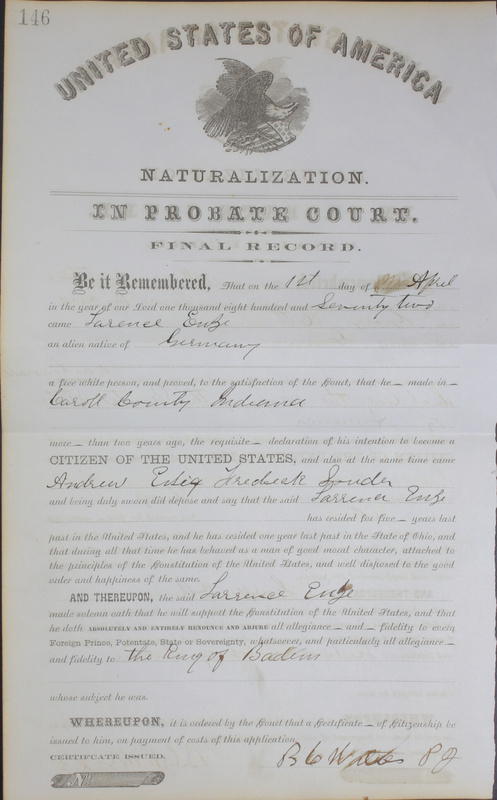 146
UNITED STATES OF AMERICA
NATURALIZATION.
IN PROBATE COURT.
FINAL RECORD.
Be it Remembered, That on the 1st day of April
in the year of our Lord one thousand eight hundred and Seventy two
came Larence Enze
an alien native of Germany
a free white person, and proved, to the satisfaction of the Court, that he made in
Caroll County Indiana
more than two years ago, the requisite declaration of his intention to become a
CITIZEN OF THE UNITED STATES, and also at the same time came
Andrew
and being duly sworn did depose and say that the said Larrence Enze
has resided for five years last
past in the United States, and he has resided one year last past in the State of Ohio, and
that during all that time he has behaved as a man of good moral character, attached to
the principles of the Constitution of the United States, and well disposed to the good
order and happiness of the same.
AND THEREUPON, the said Larrence Enze
made solemn oath that he will support the Constitution of the United States, and that
he doth ABSOLUTELY AND ENTIRELY RENOUNCE AND ABJURE all allegiance and fidelity to every
Foreign Prince, Potentate, State or Sovereignty, whatsoever, and particularly all allegiance
and fidelity to the King of Baden
whose subject he was.
WHEREUPON, it is ordered by the Court that a Certificate of Citizenship be
issued to him, on payment of costs of this application.
CERTIFICATE ISSUED.
P J